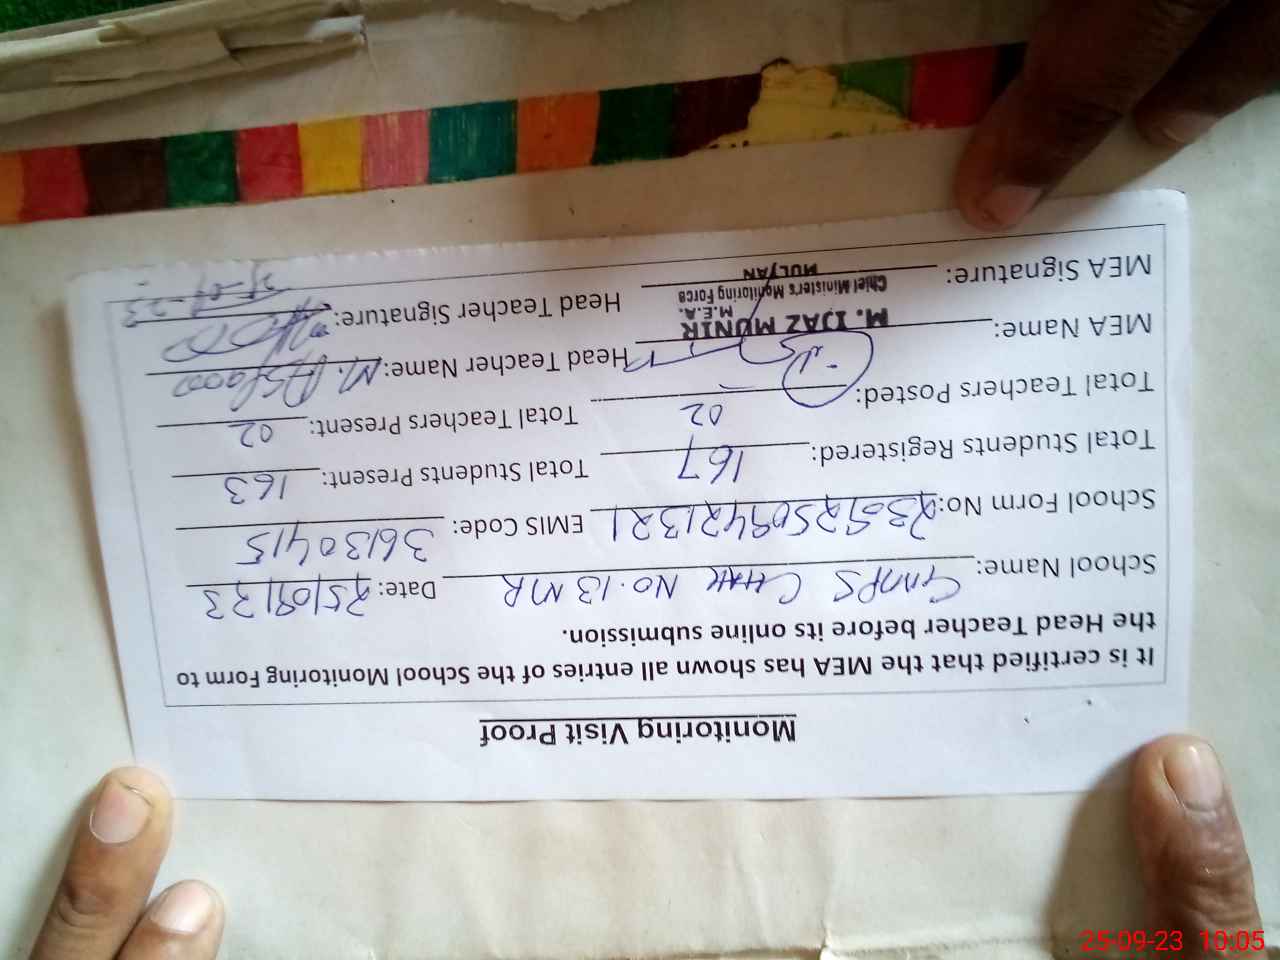 Monitoring Visit Proof
It is certified that the MEA has shown all entries of the School Monitoring Form to
the Head Teacher before its online submission.
School Name: GMPS CHAK NO.13 MR Date: 25/09/23
School Form No: 2309250942 1321 EMIS Code: 36130415
Total Students Registered: 167 Total Students Present: 163
Total Teachers Posted: 02 Total Teachers Present: 02
MEA Name: M. IJAZ MUNIR Head Teacher Name: M.
M.E.A.
Chief Minister's Monitoring Force
MULTAN
MEA Signature: Head Teacher Signature:
25-09-23
25-09-23 10:05